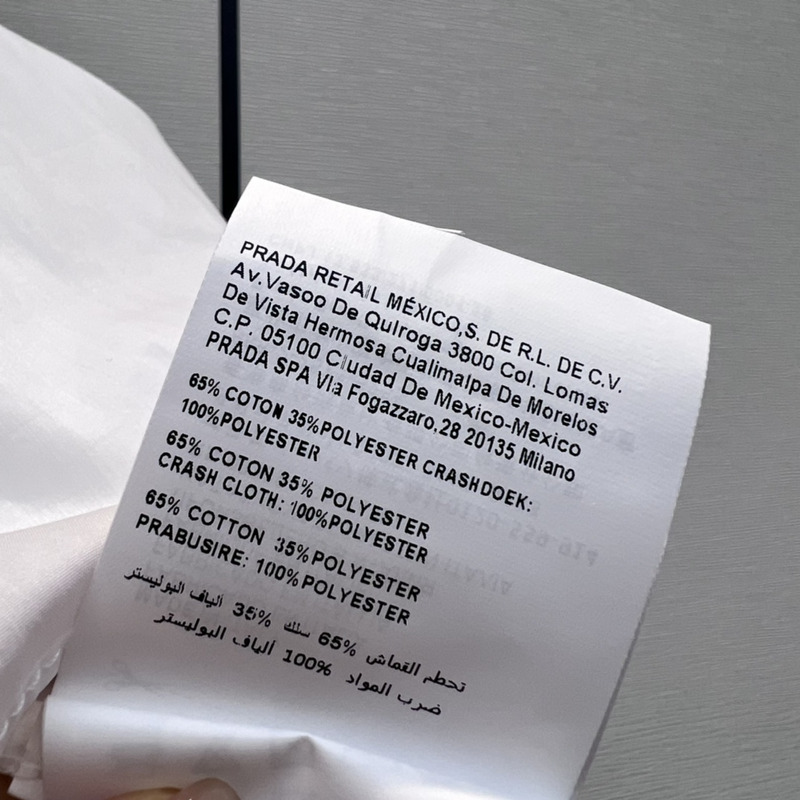 PRADA RETAIL MÉXICO,S. DE R.L. DE C.V.
Av.Vasoo De Quiroga 3800 Col. Lomas
De Vista Hermosa Cualimalpa De Morelos
C.P. 05100 Ciudad De Mexico-Mexico
PRADA SPA Via Fogazzaro,28 20135 Milano
65% COTON 35%POLYESTER CRASHDOEK:
100%POLYESTER
65% COTON 35% POLYESTER
CRASH CLOTH: 100%POLYESTER
65% COTTON 35%POLYESTER
PRABUSIRE: 100%POLYESTER
تحطم القماش 65% سلك 35% ألياف البوليستر
ضرب المواد 100% ألياف البوليستر